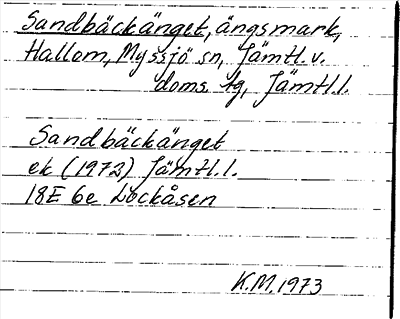 Sandbäckänget, ängsmark,
Hallom, Myssjö sn, Jämtl. v.
doms. tg, Jämtl. l.
Sandbäckänget
ek (1972) Jämtl. l.
18E 6e Lockåsen
K.M. 1973